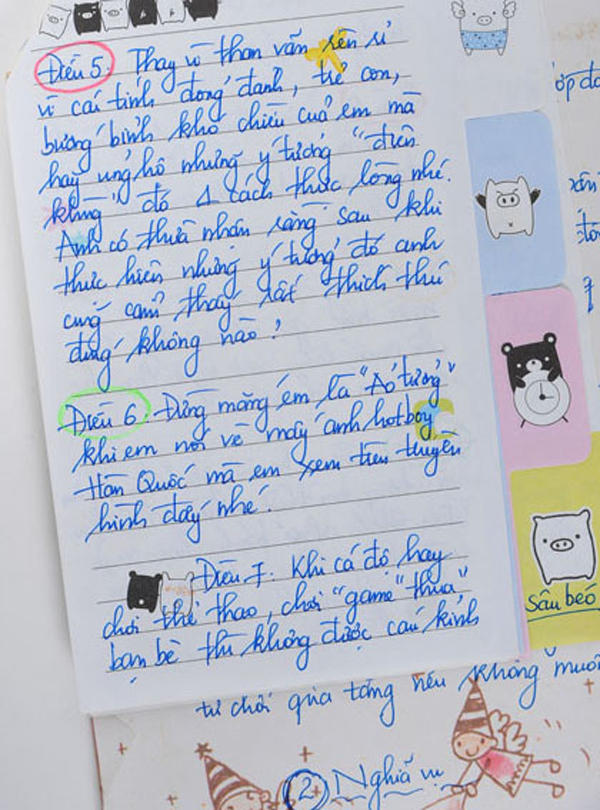 Điều 5: Thay vì than vãn rên rỉ
vì cái tính đỏng đảnh, trẻ con,
bướng bỉnh khó chiều của em mà
hãy ủng hộ những ý tưởng "điên
khùng" đó 1 cách thực lòng nhé.
Anh có thừa nhận rằng sau khi
thực hiện những ý tưởng đó anh
cũng cảm thấy rất thích thú
đúng không nào?
Điều 6: Đừng mắng em là "Ảo tưởng"
khi em nói về mấy anh hotboy
Hàn Quốc mà em xem trên truyền
hình đấy nhé.
Điều 7: Khi cá độ hay
chơi thể thao, chơi "game" "thua"
bạn bè thì không được cáu kỉnh
Sâu béo
từ chối quà tặng nếu không muốn
2 Nghĩa vụ